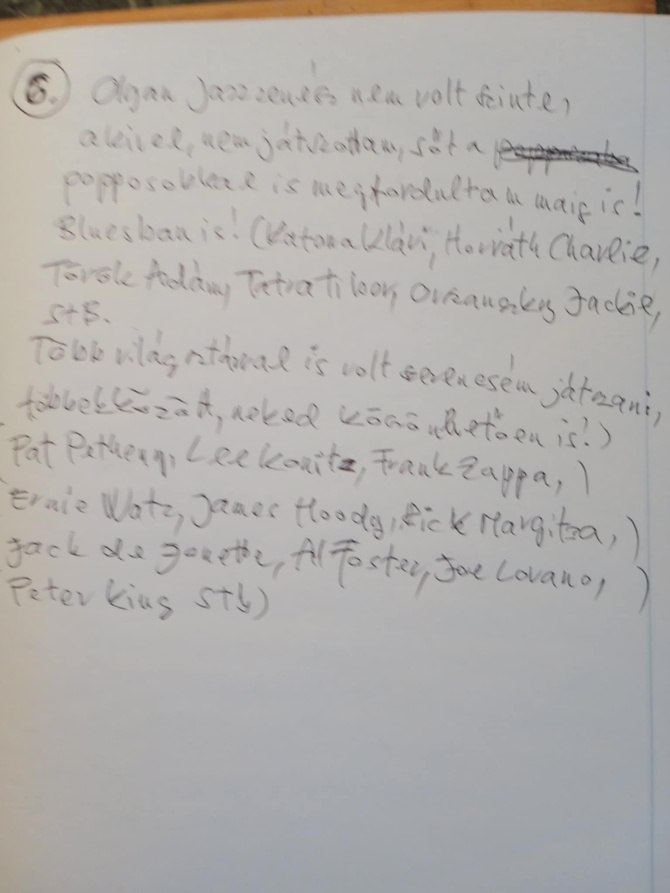 6. Olyan Jazzzenész nem volt szinte,
akivel, nem játszottam, sőt a
popposokkal is megfordultam maig is!
Bluesban is! (Katona Klári, Horváth Charlie,
Török Ádám, Tátrai Tibor, Orszaczky Jackie,
stb.
Több világsztárral is volt szerencsém játszani,
többek között, neked köszönhetően is!)
Pat Metheny, Lee Konitz, Frank Zappa,)
Ernie Watz, James Moody, Rick Margitza,)
Jack de Jonette, Al Foster, Joe Lovano,)
Peter King stb)